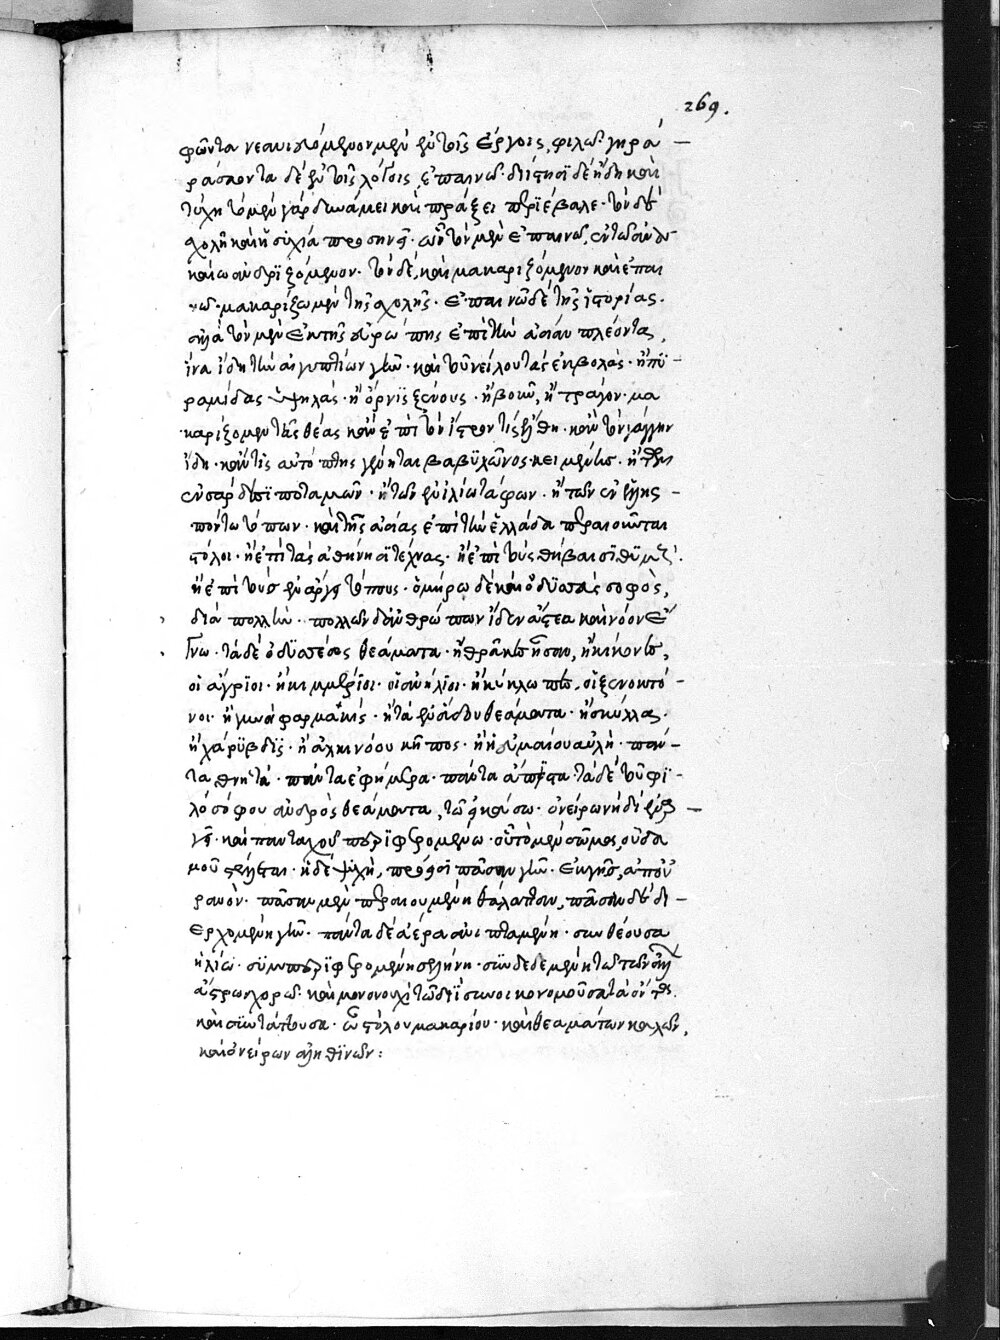 269.
φῶντα νεανιευόμενον μὲν ἐν τοῖς ἔργοις, φιλῶ· γηρά
ράσκοντα δὲ ἐν τοῖς λόγοις, ἐπαινῶ· διέστησι δὲ ἤδη καὶ
τύχη τὸ μὲν γὰρ δυνάμει καὶ πράξει περιέβαλε· τὸν δὲ
σχολῆ καὶ ἡσυχία προσηνεῖ· οὖν τὸν μὲν ἐπαινῶ,
καὶ ὡς ἀνδριζόμενον· τὸν δὲ, καὶ μακαριζόμενον καὶ ἐπαι
νῶ· μακαρίζω μὲν τῆς σχολῆς· ἐπαινῶ δὲ τῆς ἱστορίας·
εἶτα τὸν μὲν ἐκ τῆς εὐρώπης ἐπὶ τὴν ἀσίαν πλέοντα,
ἵνα ἴδη τὴν αἰγυπτίων γῆν· καὶ τοῦ νείλου τὰς ἐκβολὰς· ἢ πυ
ραμίδας ὑψηλάς· ἢ ὄρνις ξένους· ἢ βοῦν, ἢ τράγον· μα
καρίζομεν τῆς θέας κἂν ἐπὶ τὸν ἴστρον τίς ἔλθη· κἂν τὸν γάγγην
ἴδη· κἂν τίς αὐτόπτης γένηται βαβυλῶνος κειμένης· ἢ τῶν
ἐν σάρδεσι ποταμῶν· ἢ τῶν ἐν ἰλίω τάφων· ἢ τῶν ἐν ἑλλης
πόντω τόπων· καὶ τῆς ἀσίας ἐπὶ τὴν ἑλλάδα περαιοῦνται
στόλοι· ἢ ἐπὶ τὰς ἀθήνησι τέχνας· ἢ ἐπὶ τοὺς θήβαισι
ἢ ἐπὶ τοὺς ἐν ἄργει τύπους· ὁμήρω δὲ καὶ ὀδυσσεὺς σοφὸς,
διὰ πολλὴν· πολλῶν δ' ἀνθρώπων ἴδεν ἄστεα καὶ νόον ἔ
γνω· τὰ δὲ ὀδυσσέως θεάματα· ἢ θρᾶκες ἦσαν, ἢ κίκονες,
οἱ ἄγριοι· ἢ κιμμέριοι· οἱ ἀνήλιοι· ἢ κύκλωπες, οἱ ξενοκτό
νοι· ἢ γυνὴ φαρμακὶς· ἢ τὰ ἐν ᾅδου θεάματα· ἢ σκύλλα·
ἢ χάρυβδις· ἢ ἀλκινόου κῆπος· ἢ ἡ εὐμαίου αὐλὴ· πάν
τα θνητὰ· πάντα ἐφήμερα· πάντα ἄπιστα· τὰ δὲ τοῦ φι
λοσόφου ἀνδρὸς θεάματα, τῶ εἰκάσω· ὀνείρω νὴ δί' ἐναρ
γεῖ· καὶ πανταχοῦ περιφερομένω· οὗ τὸ μὲν σῶμα οὐδα
μοῦ στέλλεται· ἡ δὲ ψυχὴ, πρόεισι πᾶσαν γῆν· ἐκ γῆς, ἐπ' οὐ
ρανὸν· πᾶσαν μὲν περαιουμένη θάλατταν, πᾶσαν δὲ δι
ερχομένη γῆν· πάντα δὲ ἀέρα ἀνιπταμένη· συνθέουσα
ἡλίω· συμπεριφερομένη σελήνη· συνδεδεμένη τῶ τῶν ἄλλων
ἄστρων χορῶ· καὶ μονονουχὶ τῶ διῒ συνοικονομοῦσα τὰ ὄντα
καὶ συντάττουσα· ὦ στόλου μακαρίου· καὶ θεαμάτων καλῶν,
καὶ ὀνείρων ἀληθινῶν: